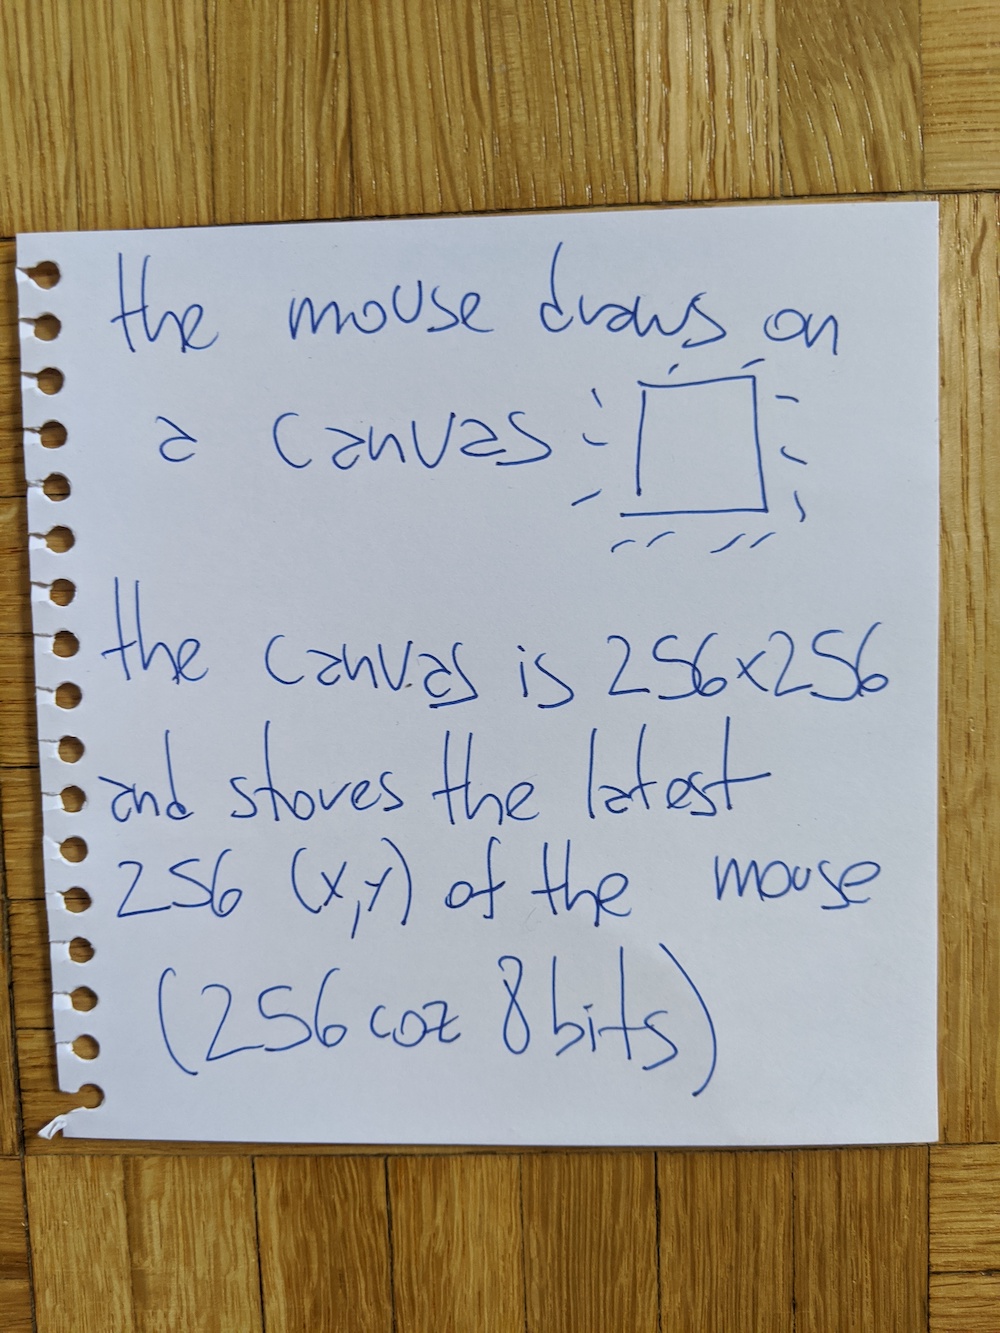 the mouse draws on
a canvas
the canvas is 256x256
and stores the latest
256 (x,y) of the mouse
(256 coz 8bits)